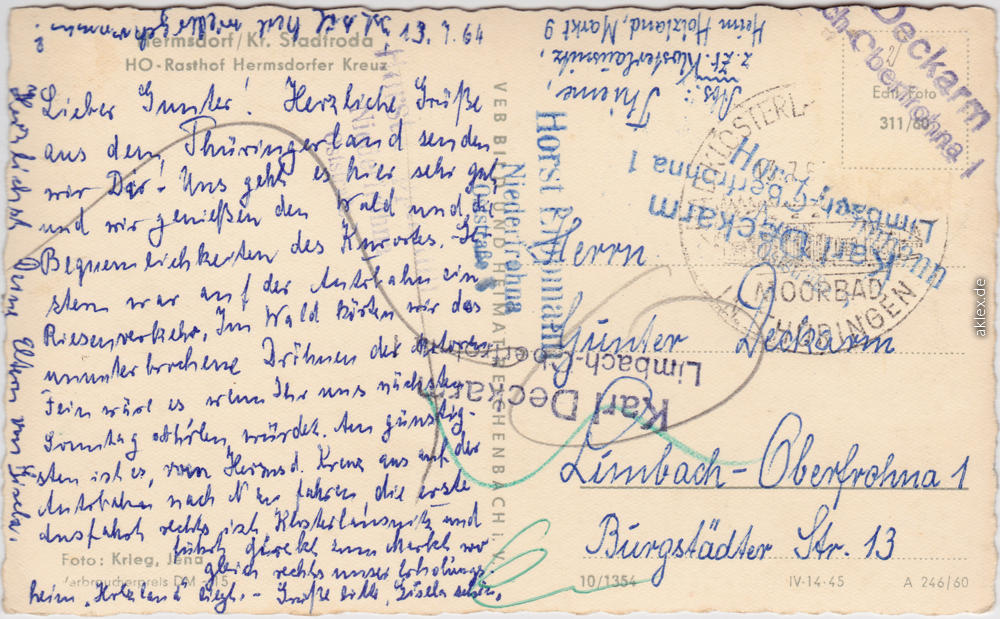 13. 7. 64
Hermsdorf/Kr. Stadtroda
HO-Rasthof Hermsdorfer Kreuz
Lieber Gunter! Herzliche Grüße
aus dem Thüringerland senden
wir Dir! Uns geht es hier sehr gut
und wir genießen den Wald und die
Bequemlichkeiten des Kurortes.
stern war auf der Autobahn ein
Riesenverkehr. Im Wald hörten wir das
ununterbrochene Dröhnen der Motoren
Fein wäre es wenn Ihr uns nächsten
Sonntag würdet. Am günstig-
sten ist es, vom Hermsd. Kreuz aus auf der
Autobahn nach N zu fahren die erste
Ausfahrt rechts ist Klosterlausnitz und
führt direkt zum Markt wo
gleich rechts unser Erholungs-
heim "Holzland" liegt. - Grüße bitte Gisela schön.
Herzlichst Deine Eltern
Foto: Krieg, Jena
Verbraucherpreis DM -,15
VEB BILD UND HEIMAT REICHENBACH i. V.
Abs.: Thieme,
z. Zt. Klosterlausnitz,
Heim Holzland, Markt 9
Echt Foto
311/60
Karl Deckarm
Limbach-Oberfrohna 1
Horst
Niederfrohna
Karl Deckarm
Limbach-Oberfrohna 1
Deckarm
Oberfrohna 1
KLOSTERL
MOORBAD
THÜRINGEN
Herrn
Günter Deckarm
Limbach-Oberfrohna 1
Burgstädter Str. 13
10/1354
IV-14-45
A 246/60
aklex.de